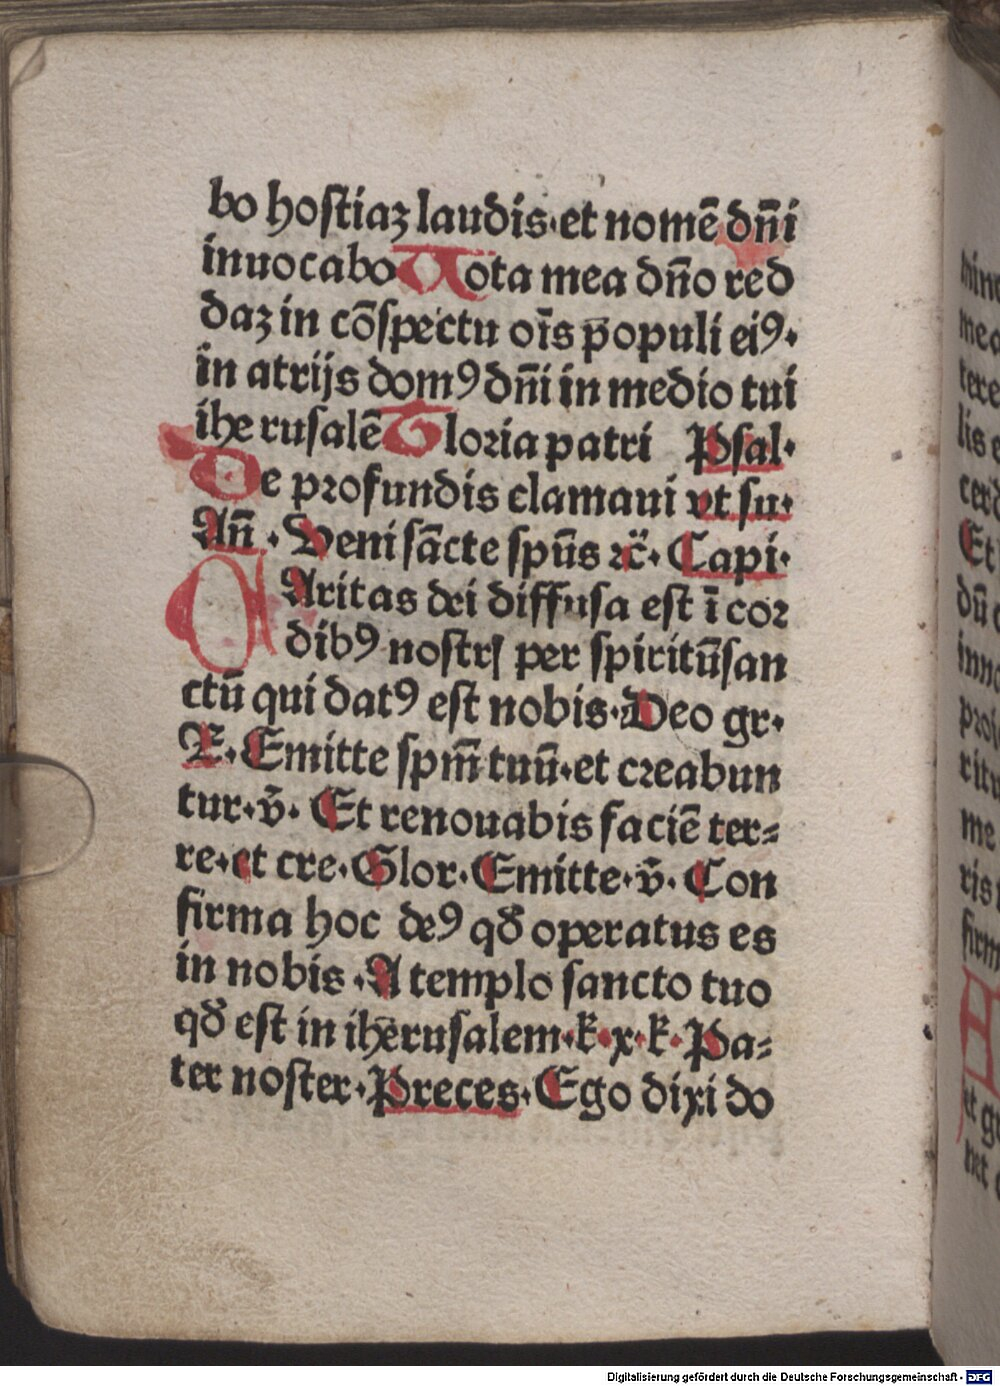 bo hostiaꝫ laudis·et nomē dn̄i
inuocabo Uota mea dn̄o red
daꝫ in cōspectu oīs p̄opuli eiꝰ·
in atrijs domꝰ dn̄i in medio tui
ihe rusalē Gloria patri Psal·
De profundis clamaui vt su·
An̄ · Veni sācte spūs ꝛc̄· Capi·
CAritas dei diffusa est ī cor
dibꝰ nostrꝭ per spiritūsan
ctū qui datꝰ est nobis·Deo gr·
R·Emitte spm̄ tuū·et creabun
tur·v̄· Et renouabis faciē ter⸗
re·et cre·Glor·Emitte·v̄· Con
firma hoc deꝰ qð operatus es
in nobis ·A templo sancto tuo
qð est in ihērusalem·k̄·x·k̄·Pa⸗
ter noster·Preces·Ego dixi do
me
lis
Et
dū
inno
me
ris
firm
Digitalisierung gefördert durch die Deutsche Forschungsgemeinschaft - DFG